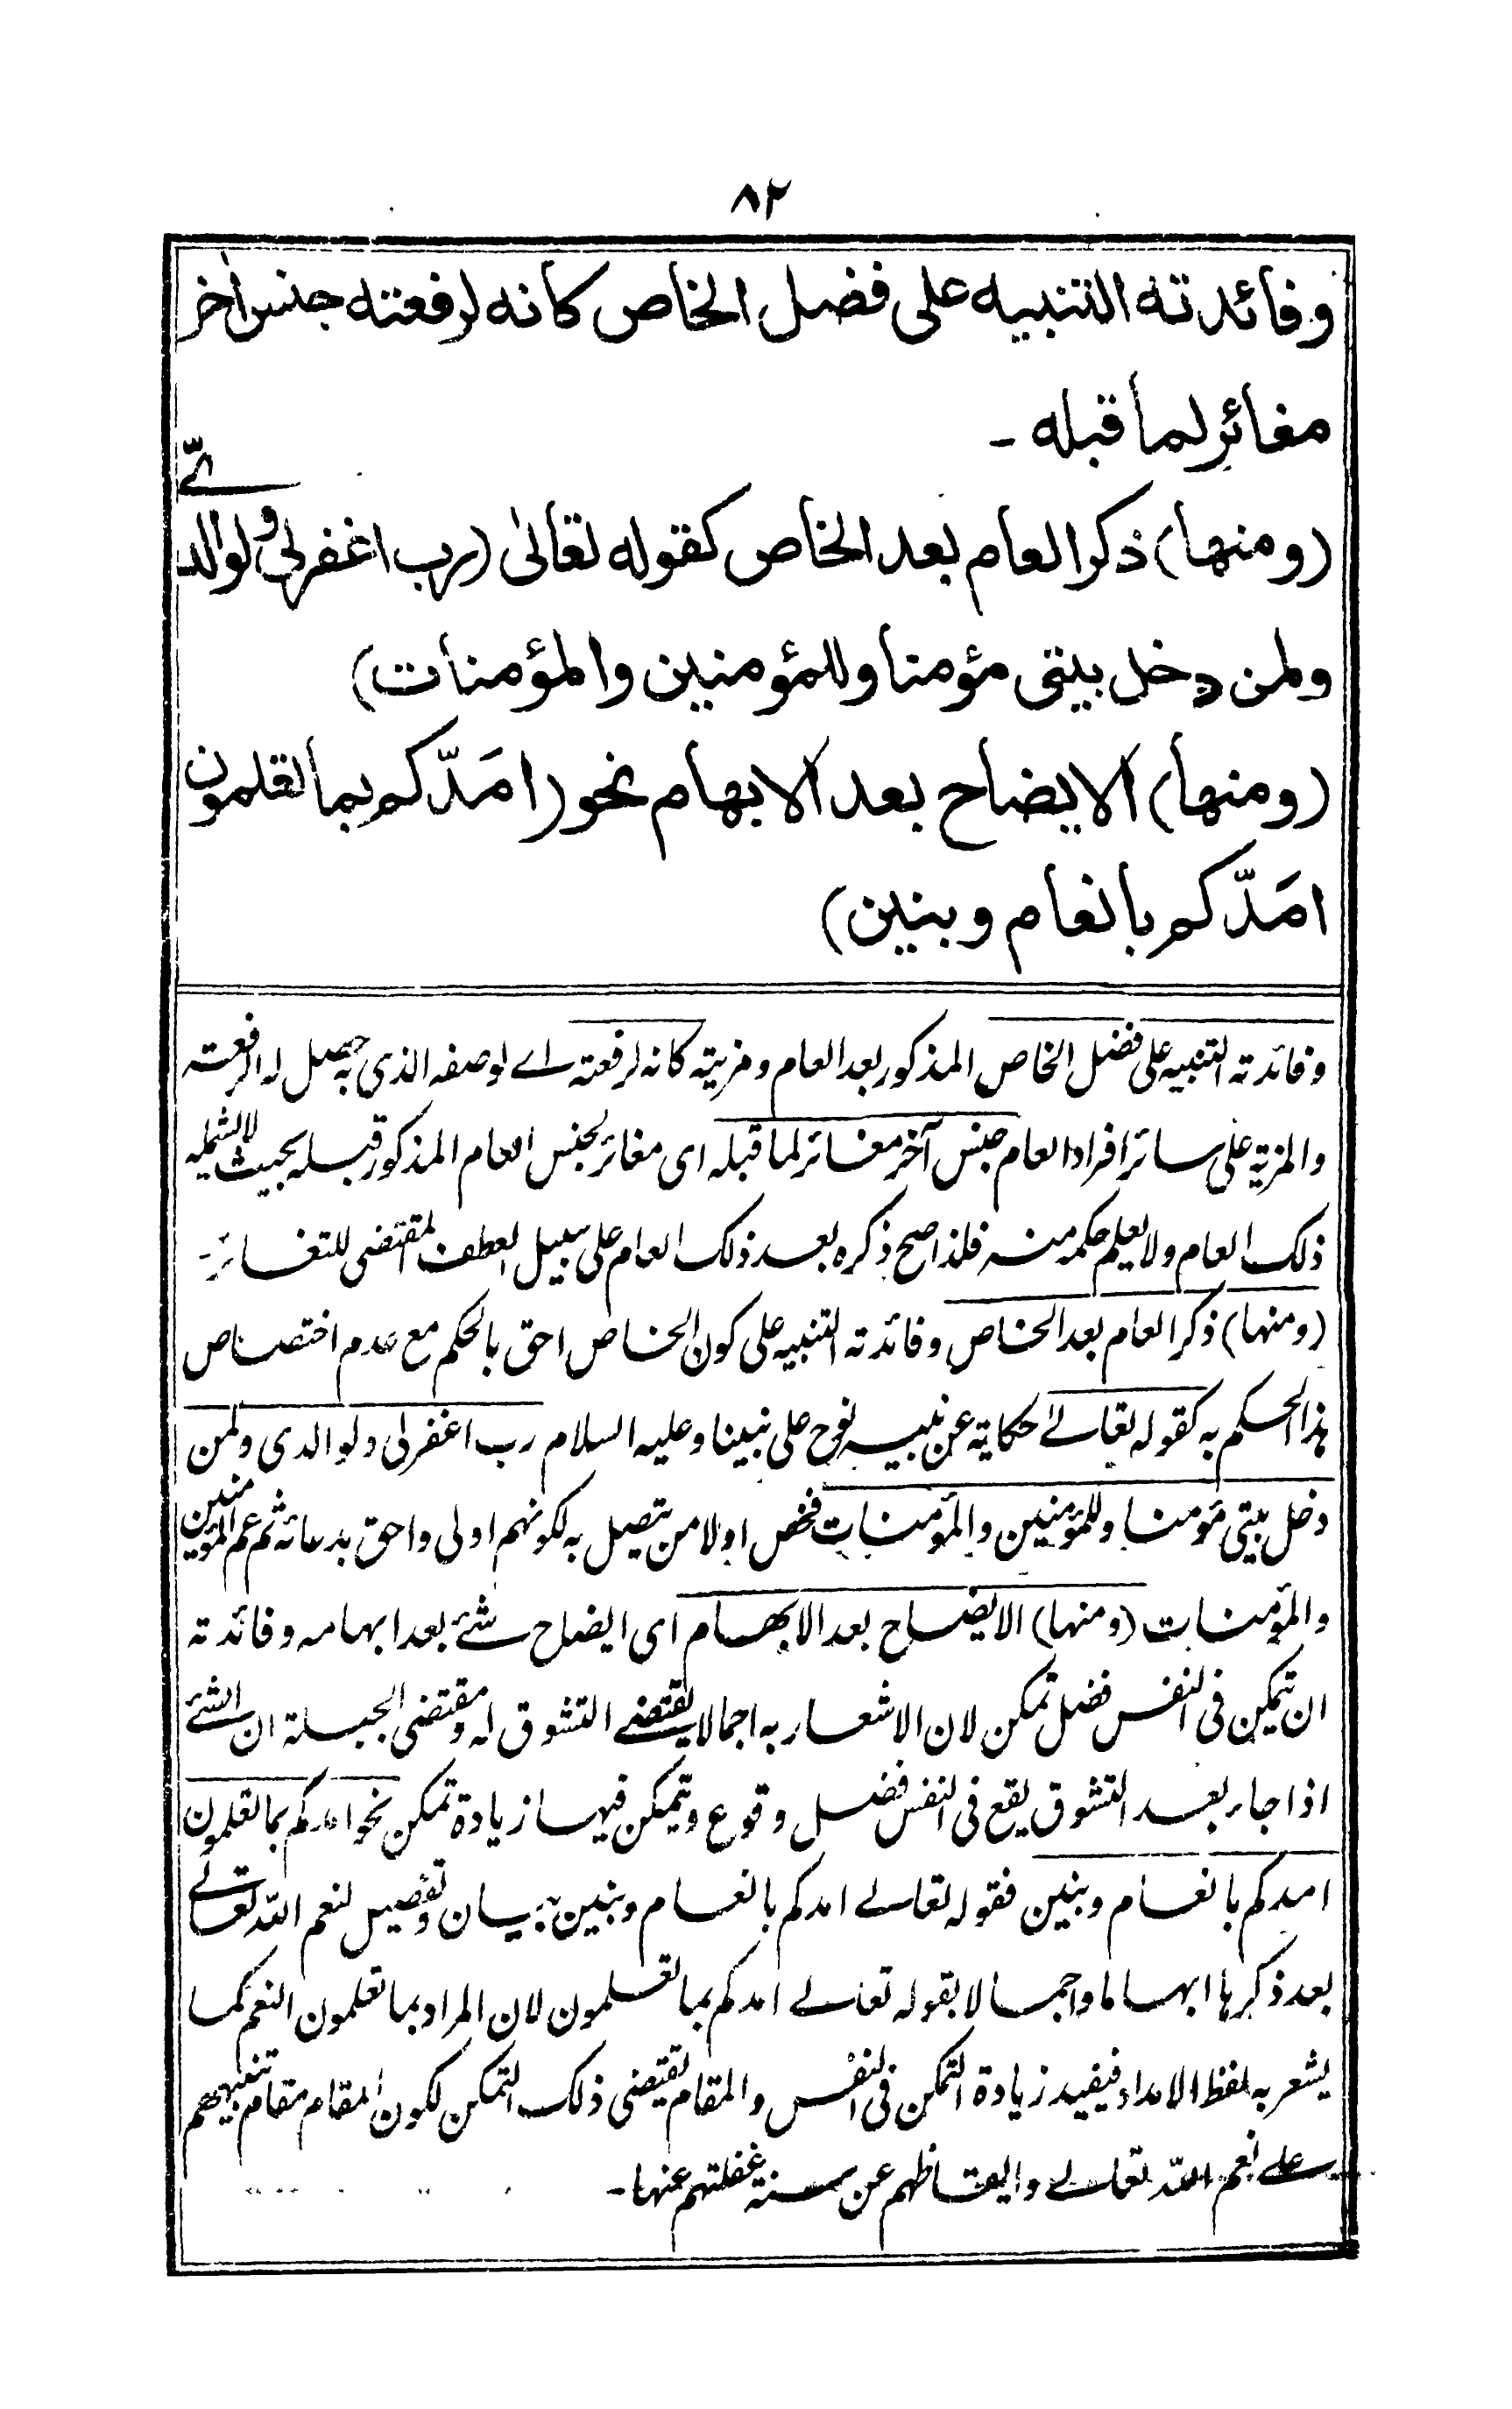 ۸۲
وفائدته التنبيه على فضل الخاص كانه لرفعته جنس اٰخر
مغائر لما قبله -
(ومنها) ذكر العام بعد الخاص كقوله تعالىٰ (رب اغفرلي ولوالديّ
ولمن دخل بيتى مؤمنا وللمؤمنين والمؤمنات)
(ومنها) الايضاح بعد الابهام نحو (امَدّكم بما تعلمون
امَدّكم بانعام وبنين)
وفائدته التنبيه على فضل الخاص المذكور بعد العام ومزيته كانه لرفعته اے لوصفه الذي به حصل له الرفعته
والمزية على سائر افراد العام جنس آخر مغائر لما قبله اى مغائر لجنس العام المذكور قبله بحيث لا يشمله
ذلك العام ولا يعلم حكمه منه فلذا صح ذكره بعد ذلك العام على سبيل العطف المقتضى للتغائر-
(ومنها) ذكر العام بعد الخاص وفائدته التنبيه على كون الخاص احق بالحكم مع عدم اختصاص
هذا الحكم به كقوله تعالےٰ حكاية عن نبيه نوح على نبينا وعليه السلام رب اغفرلى ولوالدى ولمن
دخل بيتى مؤمنا وللمؤمنين والمؤمنات فخص اولا من يتصل به لكونهم اولى واحق بدعائه ثم عم المؤمنين
والمؤمنات (ومنها) الايضاح بعد الابهام اى ايضاح شئے بعد ابهامه وفائدته
ان يتمكن فى النفس فضل تمكن لان الاشعار به اجمالا يقتضے التشوق له ومقتضى الجبلة ان الشئے
اذا جاء بعد التشوق يقع فى النفس فضل وقوع ويتمكن فيها زيادة تمكن نحو امدكم بما تعلمون
امدكم بانعام وبنين فقوله تعالے امدكم بانعام وبنين بيان وتفصيل لنعم الله تعالے
بعد ذكرها ابهاما واجمالا بقوله تعالے امدكم بما تعلمون لان المراد بما تعلمون النعم كما
يشعر به لفظ الامداد فيفيد زيادة التمكن فى النفس والمقام يقتضى ذلك التمكن لكون المقام مقام تنبيههم
علے نعم الله تعالے وايقاظهم عن سنة غفلتهم عنها-